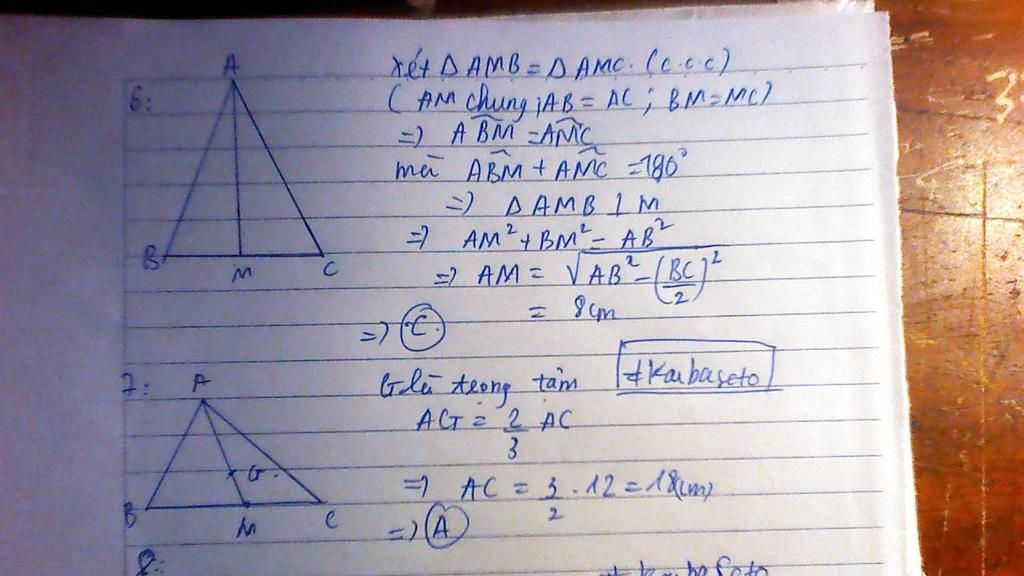 6:
A
B
M
C
Xét Δ AMB = Δ AMC. (c.c.c)
( AM chung; AB = AC ; BM = MC)
=> ABM̂ = AMĈ
mà ABM̂ + AMĈ = 180°
=> Δ AMB ⊥ M
=> AM² + BM² = AB²
=> AM = √(AB² - (BC/2)²)
= 8cm
=> C
7:
A
B
M
C
G.
G là trọng tâm
#Kaibaseto
AG = 2/3 AC
=> AC = 3/2 . 12 = 18(cm)
=> A
8:
#KaibaSeto